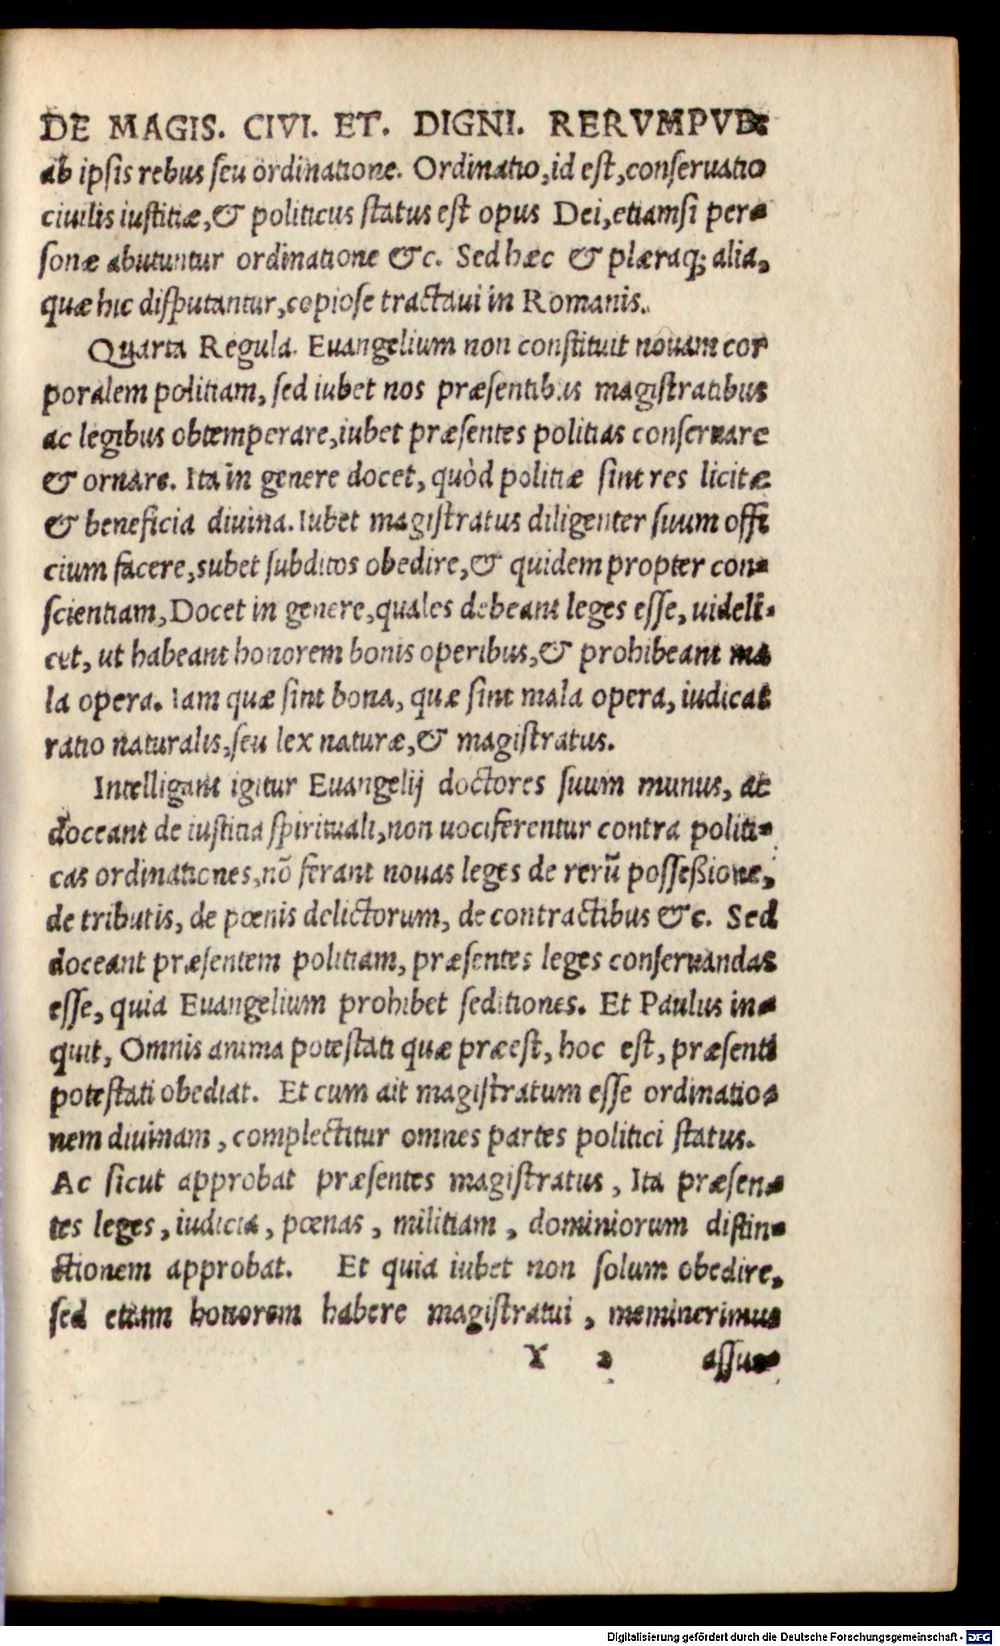 DE MAGIS. CIVI. ET. DIGNI. RERVMPVB.
ab ipsis rebus seu ordinatione. Ordinatio, id est, conseruatio
ciuilis iustitiæ, & politicus status est opus Dei, etiamsi per-
sonæ abutuntur ordinatione &c. Sed hæc & plæraq; alia,
quæ hic disputantur, copiose tractaui in Romanis.
Quarta Regula. Euangelium non constituit nouam cor
poralem politiam, sed iubet nos præsentibus magistratibus
ac legibus obtemperare, iubet præsentes politias conseruare
& ornare. Ita in genere docet, quòd politiæ sint res licitæ
& beneficia diuina. Iubet magistratus diligenter suum offi
cium facere, iubet subditos obedire, & quidem propter con-
scientiam, Docet in genere, quales debeant leges esse, uideli-
cet, ut habeant honorem bonis operibus, & prohibeant ma
la opera. Iam quæ sint bona, quæ sint mala opera, iudicat
ratio naturalis, seu lex naturæ, & magistratus.
Intelligant igitur Euangelij doctores suum munus, ac
doceant de iustitia spirituali, non uociferentur contra politi-
cas ordinationes, nõ ferant nouas leges de rerũ possessione,
de tributis, de pœnis delictorum, de contractibus &c. Sed
doceant præsentem politiam, præsentes leges conseruandas
esse, quia Euangelium prohibet seditiones. Et Paulus in-
quit, Omnis anima potestati quæ præest, hoc est, præsenti
potestati obediat. Et cum ait magistratum esse ordinatio-
nem diuinam, complectitur omnes partes politici status.
Ac sicut approbat præsentes magistratus, Ita præsen-
tes leges, iudicia, pœnas, militiam, dominiorum distin-
ctionem approbat. Et quia iubet non solum obedire,
sed etiam honorem habere magistratui, meminerimus
Y 2 assue-
Digitalisierung gefördert durch die Deutsche Forschungsgemeinschaft - DFG